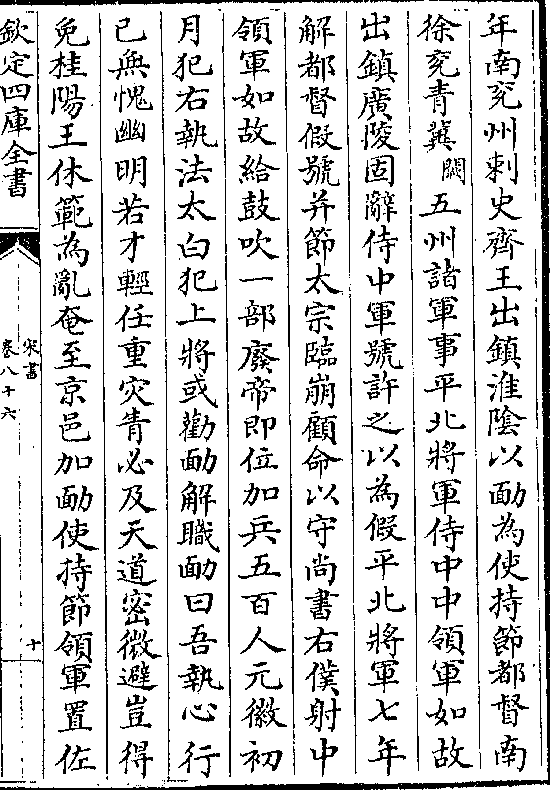 年南兖州刺史齊王出鎮淮陰以勔為使持節都督南
徐兖青冀闕五州諸軍事平北將軍侍中中領軍如故
出鎮廣陵固辭侍中軍號許之以為假平北將軍七年
解都督假號并節太宗臨崩顧命以守尚書右僕射中
領軍如故給鼓吹一部廢帝即位加兵五百人元徽初
月犯右執法太白犯上將或勸勔解職勔曰吾執心行
已無愧幽明若才輕任重災眚必及天道密微避豈得
免桂陽王休範為亂奄至京邑加勔使持節領軍置佐
欽定四庫全書
宋書
卷八十六
十